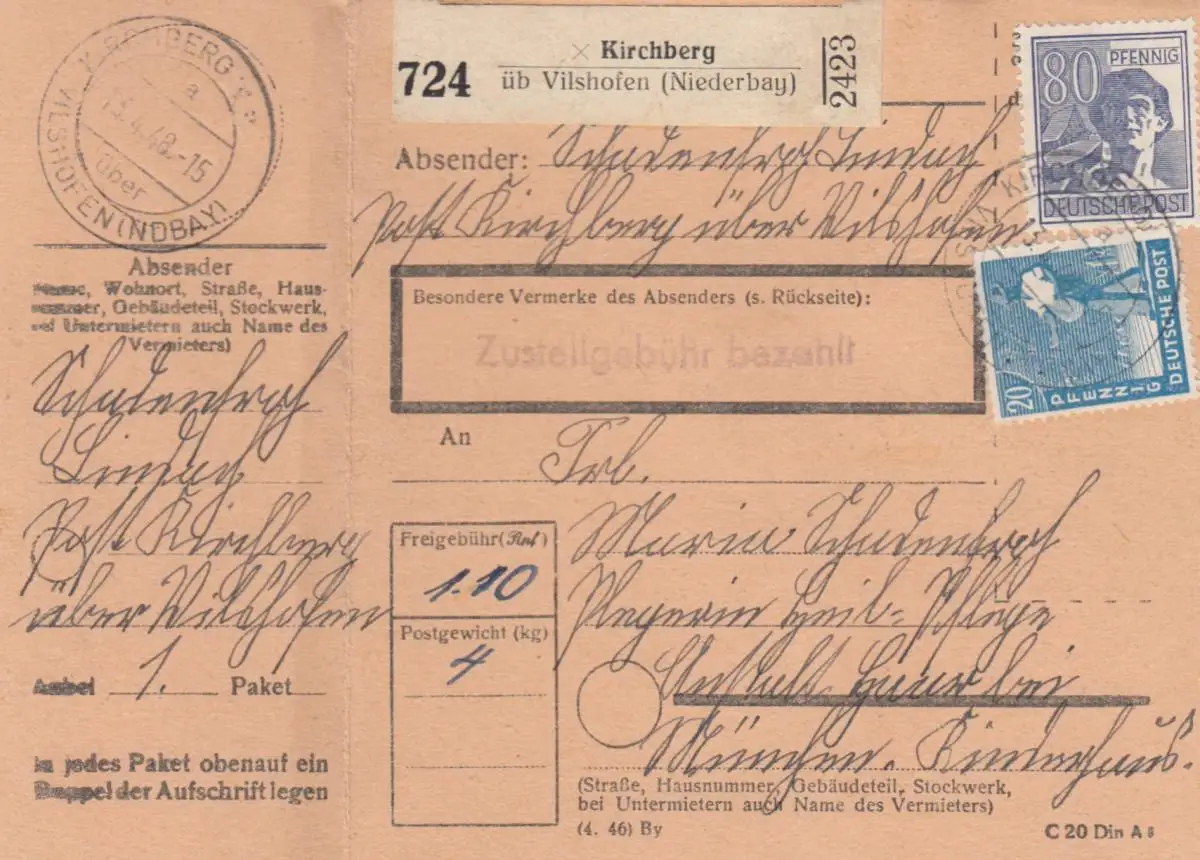 KIRCHBERG
a
13.4.48.-15
über
VILSHOFEN (NDBAY)
724
Kirchberg
üb Vilshofen (Niederbay)
2423
80 PFENNIG
DEUTSCHE POST
Absender:
Lindach
Post Kirchberg über Vilshofen
Besondere Vermerke des Absenders (s. Rückseite):
Zustellgebühr bezahlt
20 PFENNIG
DEUTSCHE POST
Absender
Name, Wohnort, Straße, Haus-
nummer, Gebäudeteil, Stockwerk,
bei Untermietern auch Name des
Vermieters)
Lindach
Post Kirchberg
über Vilshofen
Anbei 1. Paket
In jedes Paket obenauf ein
Doppel der Aufschrift legen
An
Frl.
Freigebühr (Rpf)
1.10
Postgewicht (kg)
4
Maria
Heil- Pflege
Anstalt Haar bei
München. Kinderhaus.
(Straße, Hausnummer, Gebäudeteil, Stockwerk,
bei Untermietern auch Name des Vermieters)
(4. 46) By
C 20 Din A 5